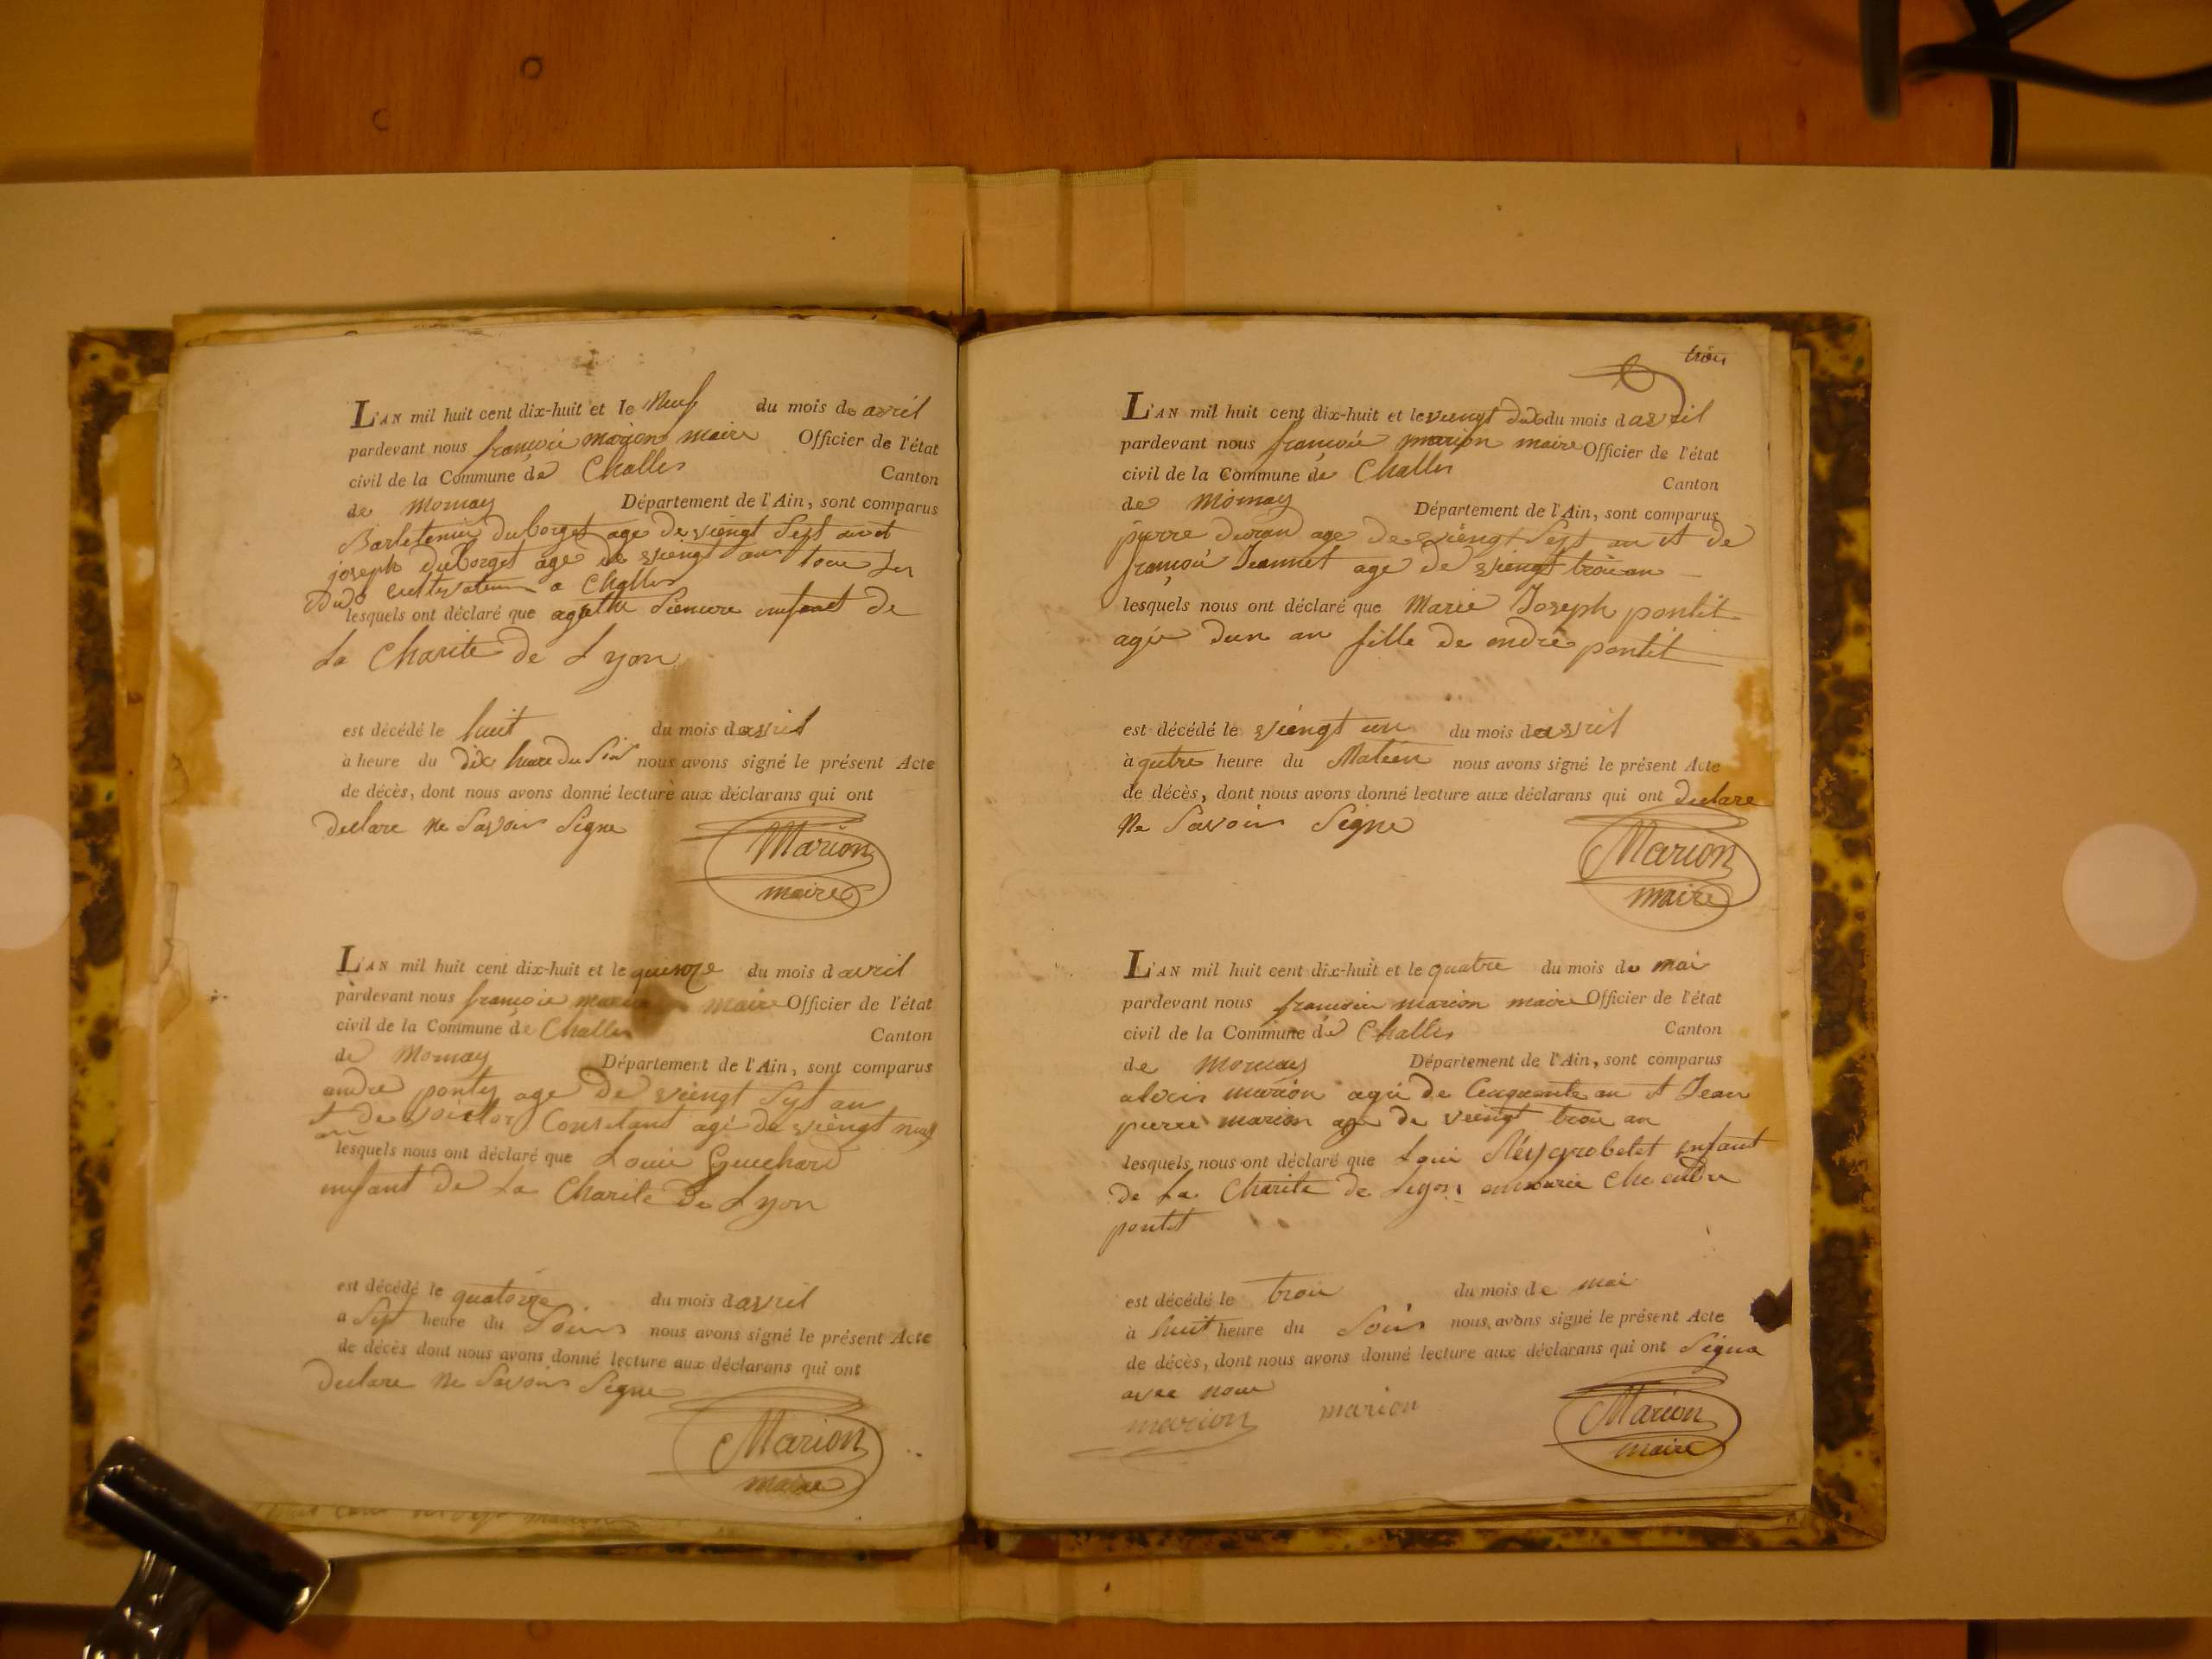 L'AN mil huit cent dix-huit et le neuf du mois de avril
pardevant nous françois marion maire Officier de l'état
civil de la Commune de Challes Canton
de Mornay Département de l'Ain, sont comparus
duborget age de viengt sept an et
joseph duborget age de viengt an tous les
dud cultivateurs a Challes
lesquels ont déclaré que agathe enfant de
La Charité de Lyon
est décédé le huit du mois davril
à heure du dix heure du soir nous avons signé le présent Acte
de décès, dont nous avons donné lecture aux déclarans qui ont
declare ne Savoir Signe
Marion
maire
L'AN mil huit cent dix-huit et le quinze du mois d avril
pardevant nous françois marion maire Officier de l'état
civil de la Commune de Challes Canton
de Mornay Département de l'Ain, sont comparus
andre ponty age de viengt Sept an
et de Constant agé de viengt neuf
an
lesquels nous ont déclaré que Loui Guichard
enfant de La Charite de Lyon
est décédé le quatorze du mois davril
a Sept heure du Soir nous avons signé le présent Acte
de décès dont nous avons donné lecture aux déclarans qui ont
declare ne Savoir Signe
Marion
maire
trois
L'AN mil huit cent dix-huit et le viengt du mois davril
pardevant nous françois marion maire Officier de l'état
civil de la Commune de Challes Canton
de Mornay Département de l'Ain, sont comparus
pierre duran age de viengt Sept an et de
françoi Jeannet age de viengt troi an
lesquels nous ont déclaré que Marie Joseph pontit
agée dun an fille de andré pontit
est décédé le viengt un du mois davril
à qutre heure du Mateen nous avons signé le présent Acte
de décès, dont nous avons donné lecture aux déclarans qui ont declare
Ne Savoir Signe
Marion
maire
L'AN mil huit cent dix-huit et le quatre du mois de mai
pardevant nous françois marion maire Officier de l'état
civil de la Commune de Challes Canton
de Mornay Département de l'Ain, sont comparus
marion agé de Cinquante an et Jean
pierre marion age de viengt troi an
lesquels nous ont déclaré que Loui enfant
de La Charite de Lyon che andre
pontit
est décédé le troi du mois de mai
à huit heure du Soir nous avons signé le présent Acte
de décès, dont nous avons donné lecture aux déclarans qui ont Signa
avec nous
marion marion
Marion
maire